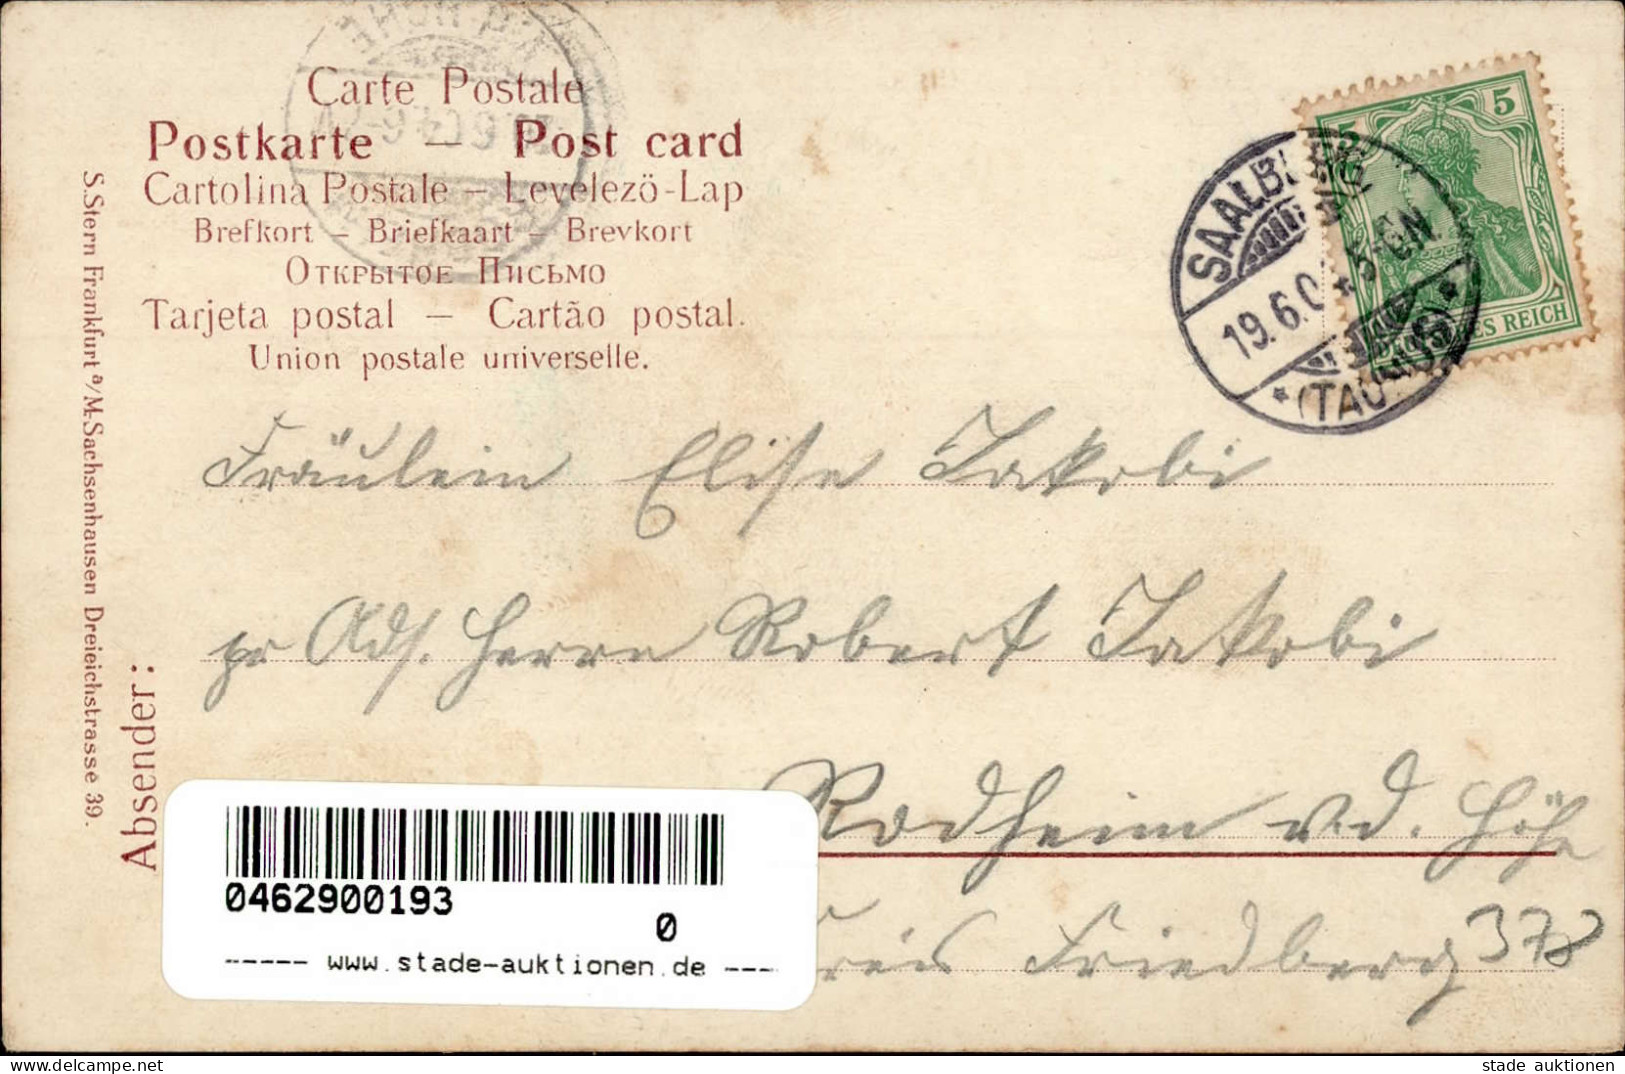 Carte Postale
Postkarte — Post card
Cartolina Postale – Levelezö-Lap
Brefkort – Briefkaart – Brevkort
Открытое Письмо
Tarjeta postal — Cartão postal.
Union postale universelle.
S.Stern Frankfurt a/M.Sachsenhausen Dreieichstrasse 39.
Absender:
5
5
REICH
19.6.0
5-6N
(TAUNUS)
Fräulein Elise Jakobi
pr Ads. Herrn Robert Jakobi
Rodheim v.d. Höhe
Kreis Friedberg 378
0462900193
0
----- www.stade-auktionen.de ---
stade auktionen